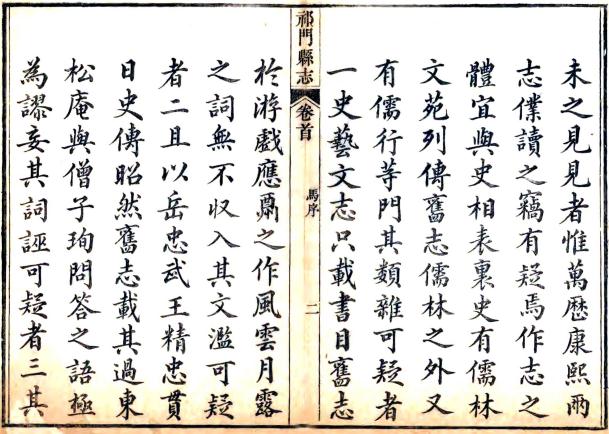 未之見見者惟萬歷康熙兩
志僕讀之竊有疑焉作志之
體宜與史相表裏史有儒林
文苑列傳舊志儒林之外又
有儒行等門其類雜可疑者
一史藝文志只載書目舊志
祁門縣志
卷首
馬序
二
於游戲應酬之作風雲月露
之詞無不收入其文濫可疑
者二且以岳忠武王精忠貫
日史傳昭然舊志載其過東
松庵與僧子珣問答之語極
為謬妄其詞誣可疑者三其